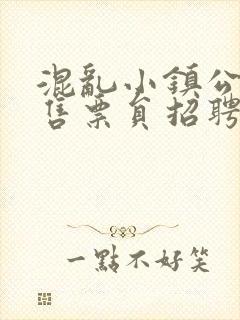 混亂小鎮公
售票員招聘
一點不好笑